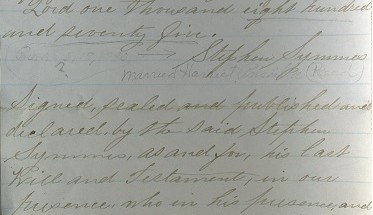 Lord one thousand eight hundred
and seventy five.
Stephen Symmes
?
Married Harriet
Signed, sealed and published and
declared, by the said Stephen
Symmes, as and for, his last
Will and Testament, in our
presence, who in his presence, and